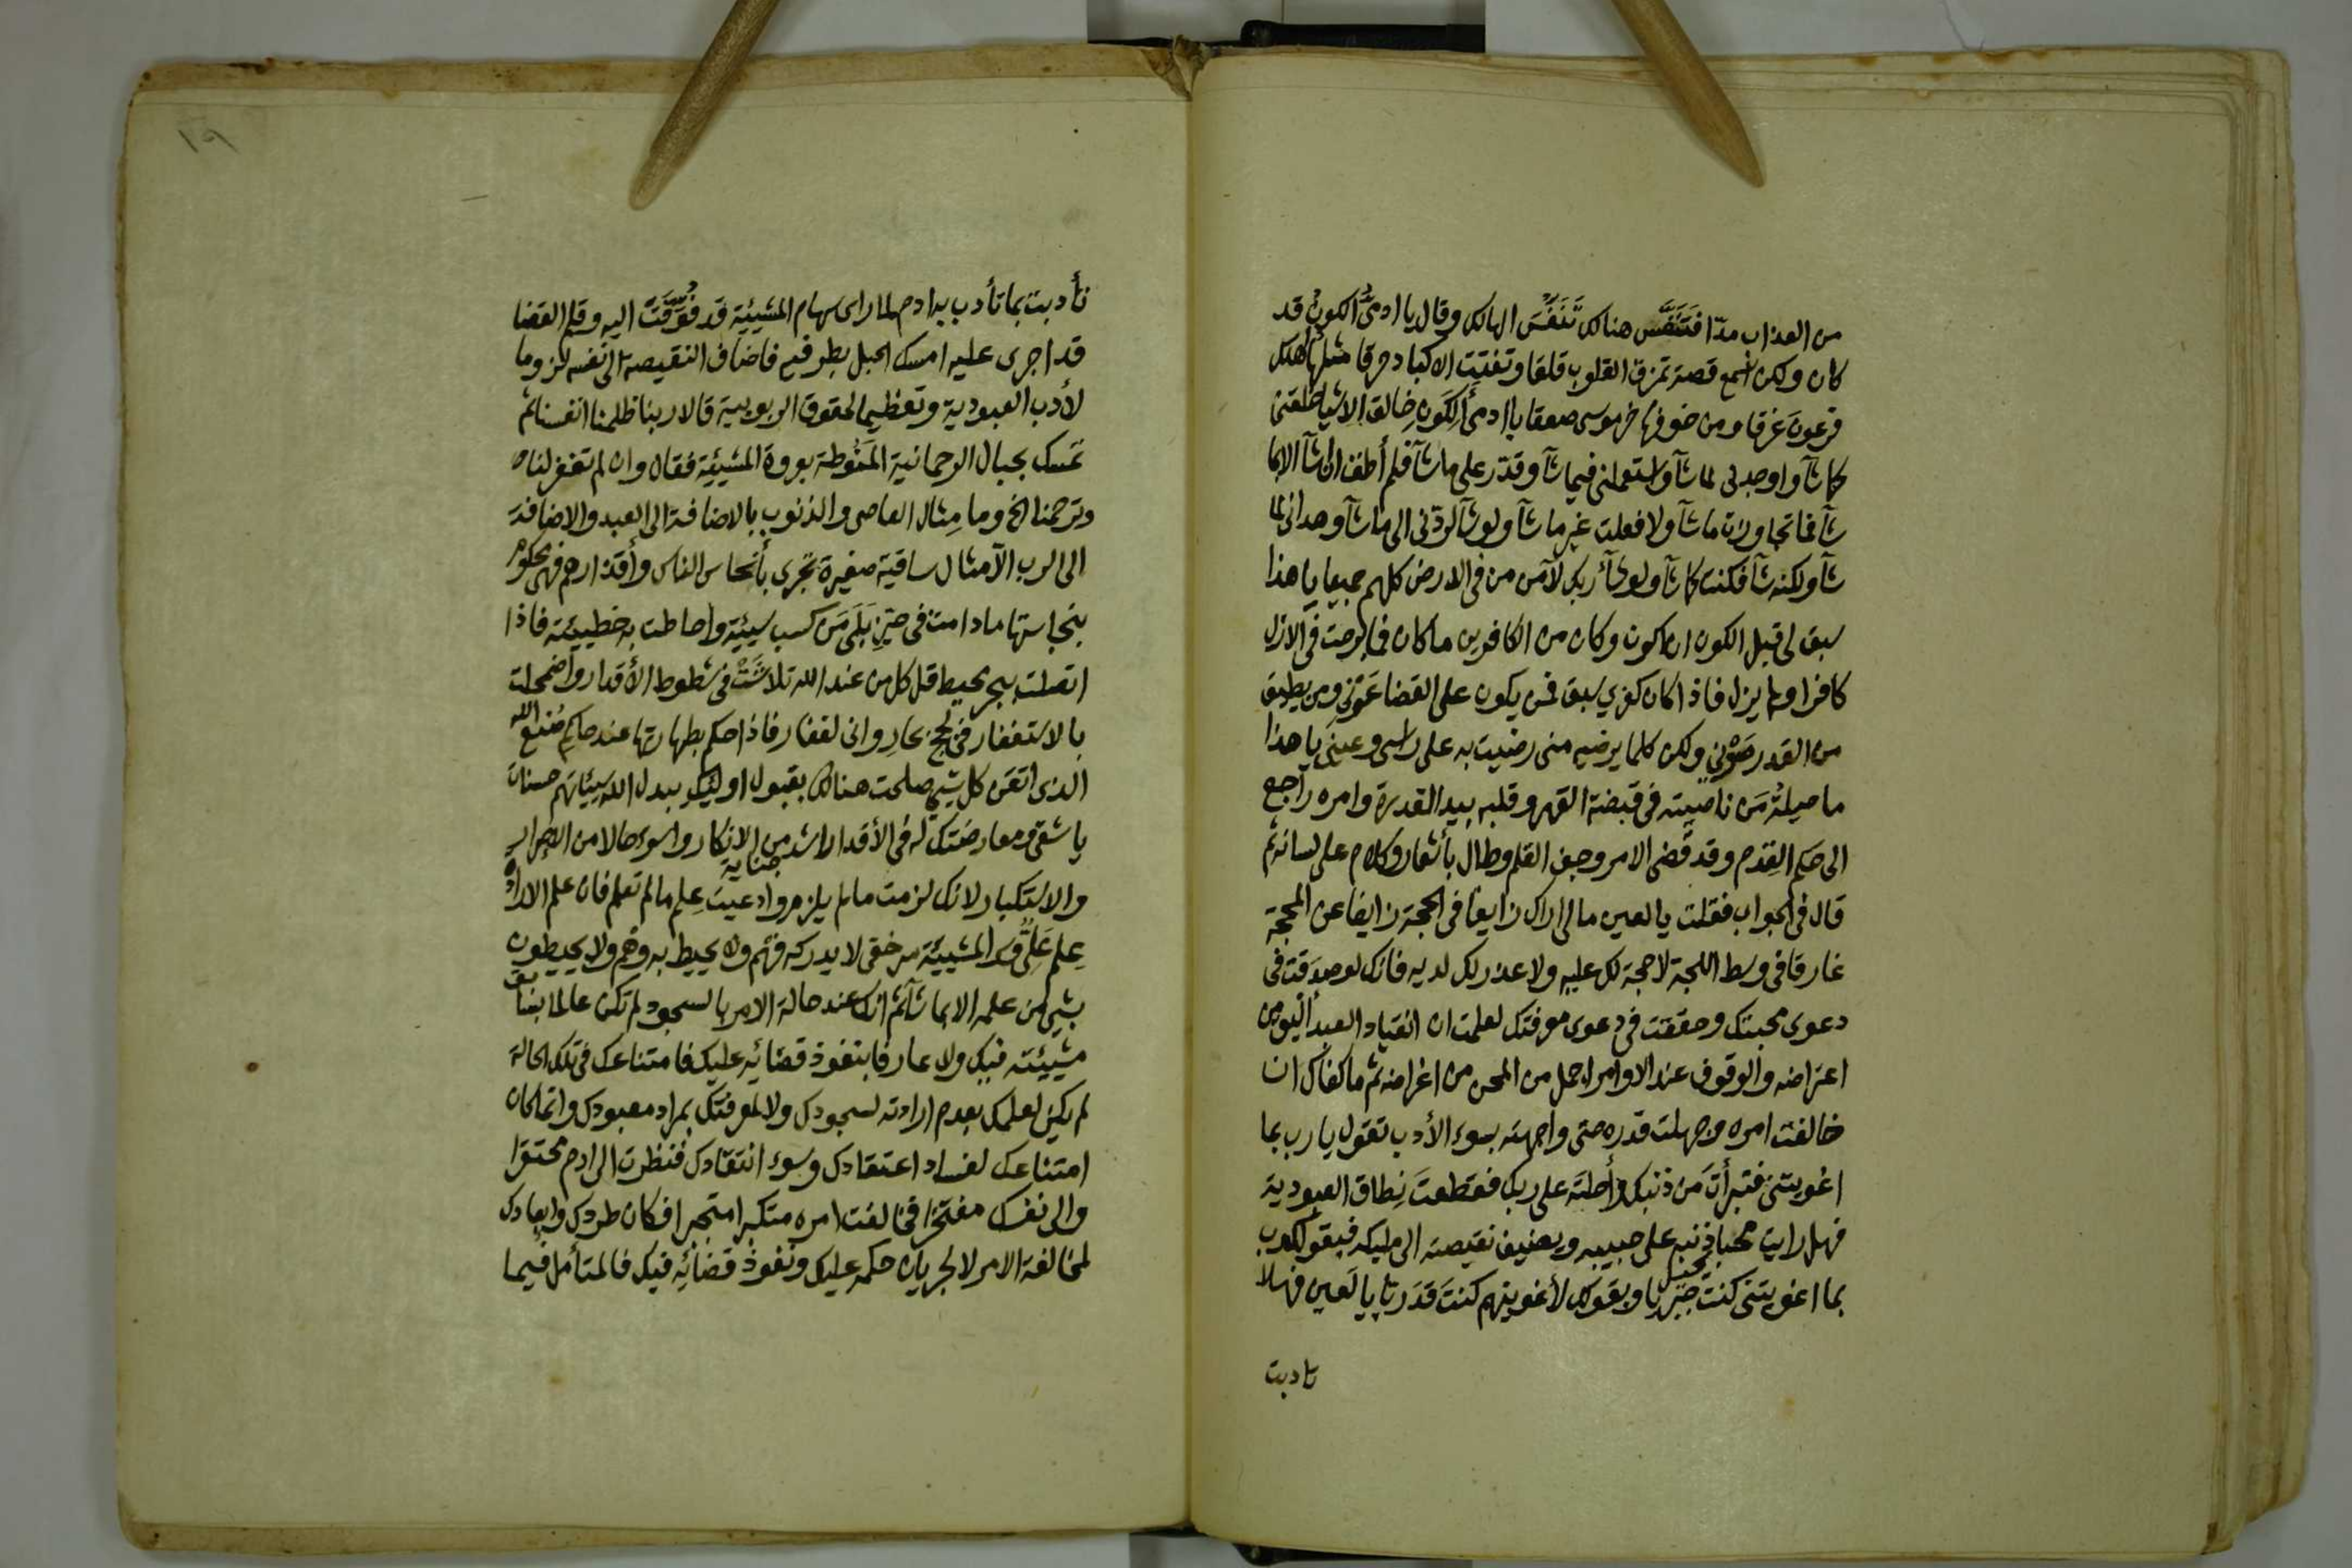 من العذاب مدّا فتنفّس هنالك تَنَفُّسَ الهالك وقال يا ادمىَّ الكونِ قد
كان ولكن اسمع قصة تمزق القلوب قلقا وتفتِت الاكباد حرقا مثلها أهلك
فرعون غرقا ومن خوفها خر موسى صعقا يا ادمىَّ الكَونِ خالق الاشيا خلقنى
كما شآ واوجدنى لما شآ واستعملنى فيما شآ وقدّر على ما شآ فلم أطق ان اشآ الا ما
شآ فما تجاوزت ما شآ ولا فعلت غير ما شآ ولو شآ لردّنى الى ما شآ وهدانى لما
شآ ولكنه شآ فكنت كما شآ ولو شآ ربك لآمن من فى الارض كلهم جميعا يا هذا
سبق لى قبل الكون ان اكون وكان من الكافرين ما كان فما برحت فى الازل
كافرا ولم يزل فاذا كان كفرى سبق فمن يكون على القضا عَوْنِي ومن يطيق
من القدر صَوْنِي ولكن كلما يرضيه منى رضيت به على راسى وعينَى يا هذا
ما حيلةُ مَن ناصيته فى قبضة القهر وقلبه بيد القدرة وامره راجع
الى حكم القِدَم وقد قُضى الامر وجف القلم وطال بأشعار وكلام على لسانه ثم
قال فى الجواب فقلت يا لعين ما لى اراك زايغا فى الحجة زايغا عن المحجة
غارقا فى وسط اللجة لا حجة لك عليه ولا عذر لك لديه فانك لو صدقت فى
دعوى محبتك وحققت فى دعوى معرفتك لعلمت ان انقياد العبد اليق من
اعتراضه والوقوف عند الاوامر اجمل من المحن من اغراضه ثم ما كفاك ان
خالفت امره وجهلت قدره حتى واجهته بسوء الأدب تقول يا رب بما
اغويتنى فتبرأتَ مَن ذنبك وأحلتَه على ربك فقطعتَ نِطاق العبودية
فهل رايت محبا يحيل ذنبه على حبيبه ويضيف نقيصته الى مليكه فبقولك رب
بما اغويتنى كنت جَبْريا وبقولك لأغوينهم كنتَ قَدَريا يا لَعين فهلا
تادبت
١٩
تأدبت بما تأدب به ادم لما راى سهام المشيئية قد فُوِّقَتْ اليه وقلم القضا
قد اجرى عليه امسك الحبل بطرفيه فاضاف النقيصة الى نفسه لزوما
لأدب العبودية وتعظيما لحقوق الربوبية قالا ربنا ظلمنا انفسنا ثم
تمسك بحبال الرحمانية المَنُوطة بعروة المشيئية فقال وان لم تغفر لنا
وترحمنا الخ وما مِثال العاصى والذنوب بالاضافة الى العبد والاضافة
الى الرب الا مثال ساقية صغيرة تجرى بأنجاس الناس وأقذارهم فهى محكوم
بنجاستها ما دامت فى حيزِ بَلَى مَن كسب سيئية واحاطت به خطييئته فاذا
اتصلت ببحر محيط قل كل من عند الله تلاشَتْ فى شطوط الأقدار واضمحلت
بالاستغفار فى لجج بحار وانى لغفار فاذا حكم بطهارتها عند حاكم صُنع الله
الذى اتقن كل شىء صلحت هنالك بقبول اوليك يبدل الله سيئياتهم حسنات
يا شقى معارضتك له فى الأقدار اشد جناية من الانكار واسوء حالا من الاصرار
والاستكبار لانك لزمت ما لم يلزم وادعيت عِلم ما لم تعلم فان علم الارادة
عِلم عَلِىٌّ وسر المشييئة سر خفى لا يدركه فَهْم ولا يحيط به وهم ولا يحيطون
بشىء من علمه الا بما شآ ثم انك عند حالة الامر بالسجود لم تكن عالما بسابق
مشييئته فيك ولا عارفا بنفوذ قضائِه عليك فامتناعك فى تلك الحالة
لم يكن لعلمك بعدم ارادته لسجودك ولا لمعرفتك بمراد معبودك وانما كان
امتناعك لفساد اعتقادك وسوء انتقادك فنظرت الى ادم محتقرا
والى نفسك مفتخرا فخالفت امره متكبرا متجبرا فكان طردك وابعادك
لمخالفة الامر لا لجريان حكمه عليك ونفوذ قضائِه فيك فالمتأمل فيما